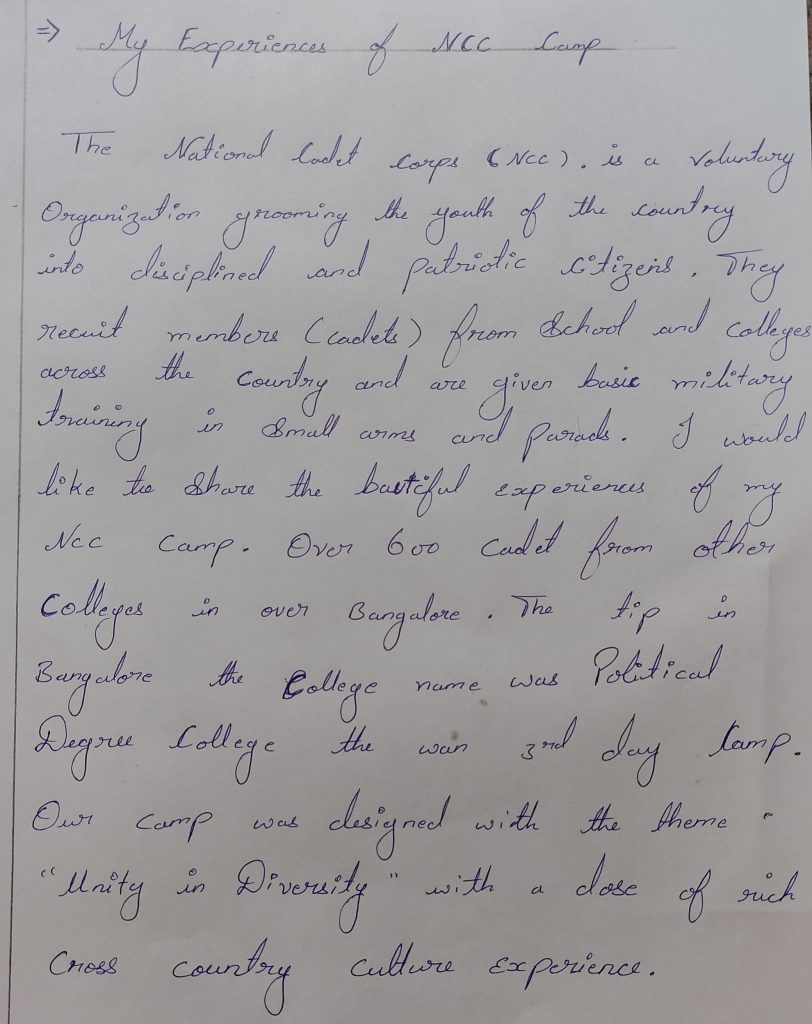 ⇒ My Experiences of NCC Camp
The National Cadet Corps (NCC). is a voluntary
Organization grooming the youth of the country
into disciplined and patriotic citizens. They
recuit members (cadets) from School and colleges
across the country and are given basic military
training in Small arms and parads. I would
like to Share the bautiful experiences of my
Ncc Camp. Over 600 cadet from other
Colleges in over Bangalore. The tip in
Bangalore the College name was Political
Degree College the wan 3rd day Camp.
Our camp was designed with the theme "
"Unity in Diversity" with a dose of rich
Cross country culture experience.